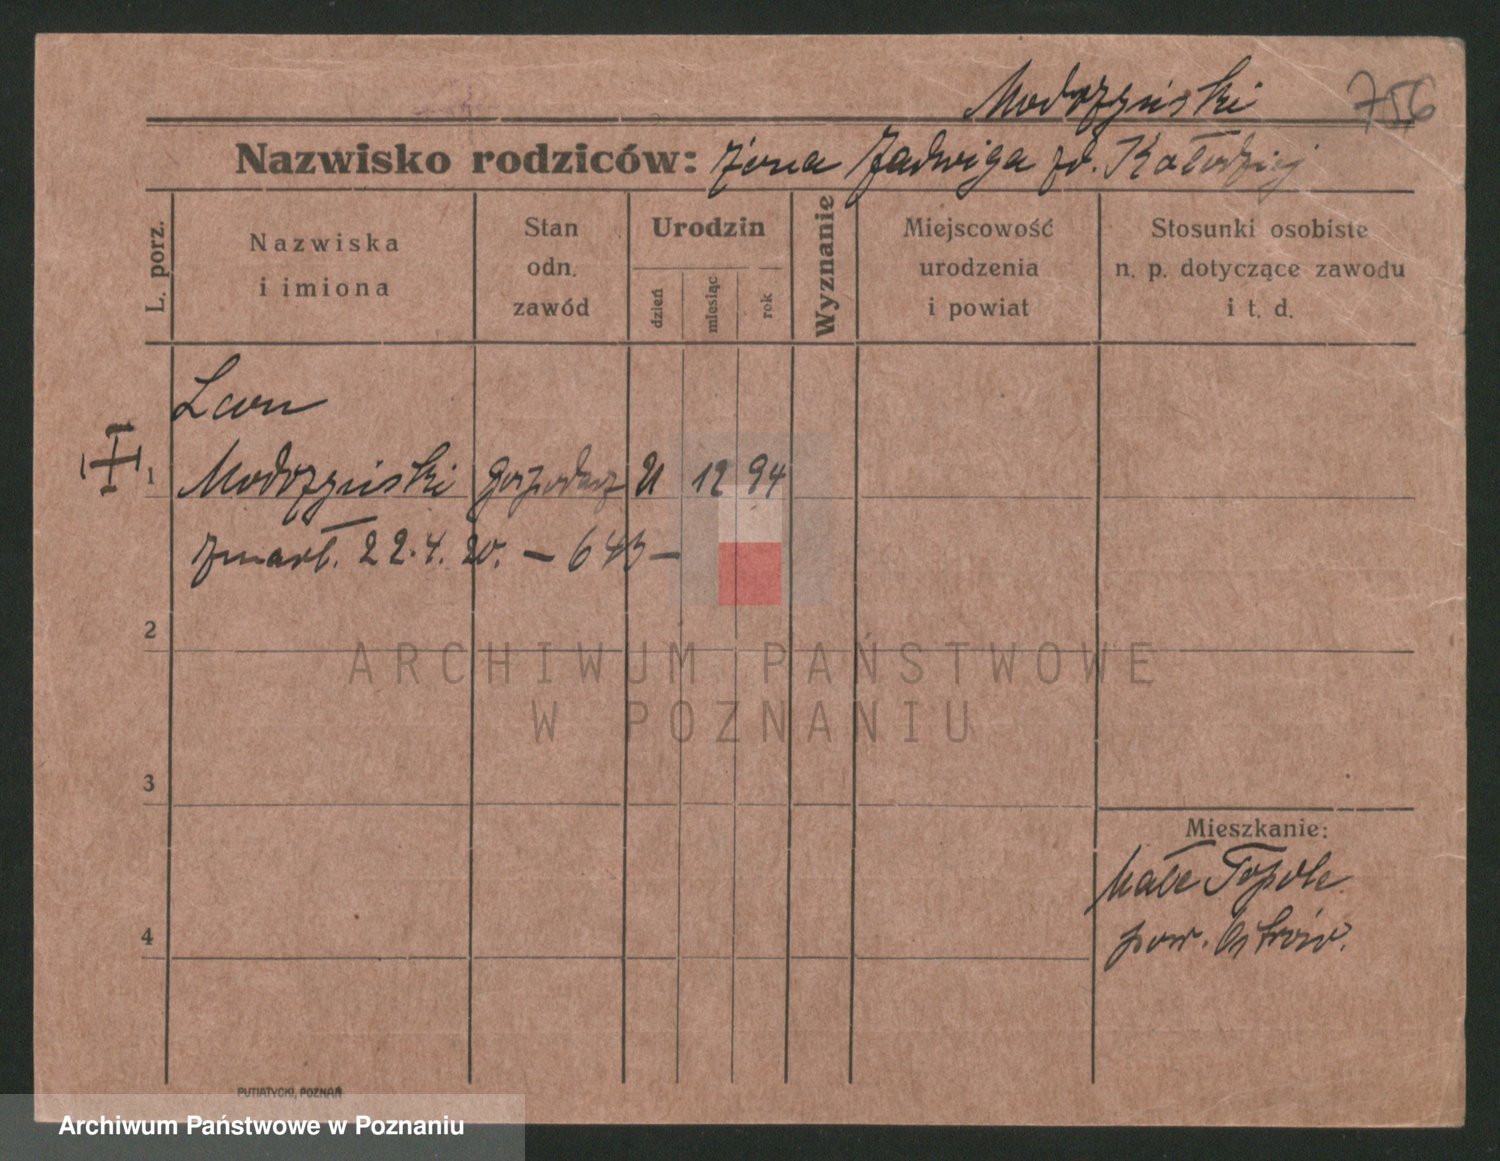 Modrzyński 756
Nazwisko rodziców: żona Jadwiga zd. Kołodziej
L. porz.
Nazwiska
i imiona
Stan
odn.
zawód
Urodzin
dzień
miesiąc
rok
Wyznanie
Miejscowość
urodzenia
i powiat
Stosunki osobiste
n. p. dotyczące zawodu
i t. d.
Leon
1 Modrzyński gospodarz 21 12 94
zmarł. 22.4.20. – 643 –
2
ARCHIWUM PAŃSTWOWE
W POZNANIU
3
Mieszkanie:
Małe Topole
4
pow. Ostrów.
PUTIATYCKI, POZNAŃ
Archiwum Państwowe w Poznaniu